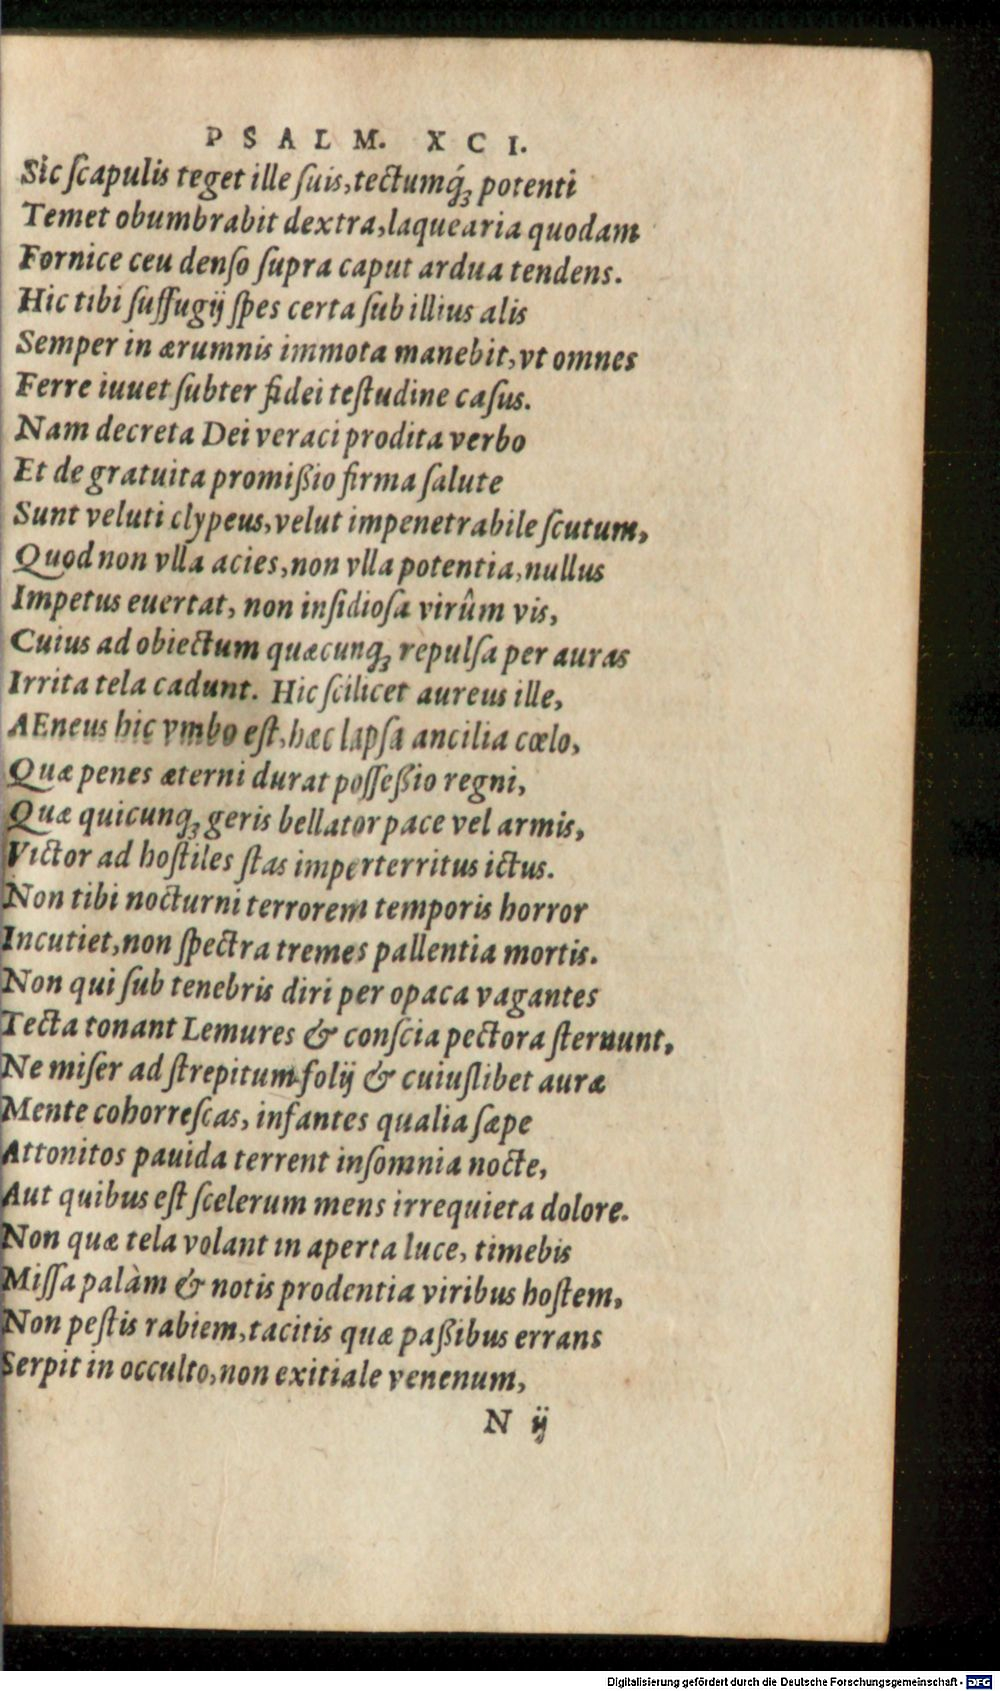 PSALM. XCI.
Sic ſcapulis teget ille ſuis, tectumq́ꝫ potenti
Temet obumbrabit dextra, laquearia quodam
Fornice ceu denſo ſupra caput ardua tendens.
Hic tibi ſuffugij ſpes certa ſub illius alis
Semper in ærumnis immota manebit, vt omnes
Ferre iuuet ſubter fidei teſtudine caſus.
Nam decreta Dei veraci prodita verbo
Et de gratuita promißio firma ſalute
Sunt veluti clypeus, velut impenetrabile ſcutum,
Quod non vlla acies, non vlla potentia, nullus
Impetus euertat, non inſidioſa virûm vis,
Cuius ad obiectum quæcunqꝫ repulſa per auras
Irrita tela cadunt. Hic ſcilicet aureus ille,
AEneus hic vmbo eſt, hæc lapſa ancilia cœlo,
Quæ penes æterni durat poſſeßio regni,
Quæ quicunqꝫ geris bellator pace vel armis,
Victor ad hoſtiles ſtas imperterritus ictus.
Non tibi nocturni terrorem temporis horror
Incutiet, non ſpectra tremes pallentia mortis.
Non qui ſub tenebris diri per opaca vagantes
Tecta tonant Lemures & conſcia pectora ſternunt,
Ne miſer ad ſtrepitum folij & cuiuſlibet auræ
Mente cohorreſcas, infantes qualia ſæpe
Attonitos pauida terrent inſomnia nocte,
Aut quibus eſt ſcelerum mens irrequieta dolore.
Non quæ tela volant in aperta luce, timebis
Miſſa palàm & notis prodentia viribus hoſtem,
Non peſtis rabiem, tacitis quæ paßibus errans
Serpit in occulto, non exitiale venenum,
N ij
Digitalisierung gefördert durch die Deutsche Forschungsgemeinschaft - DFG